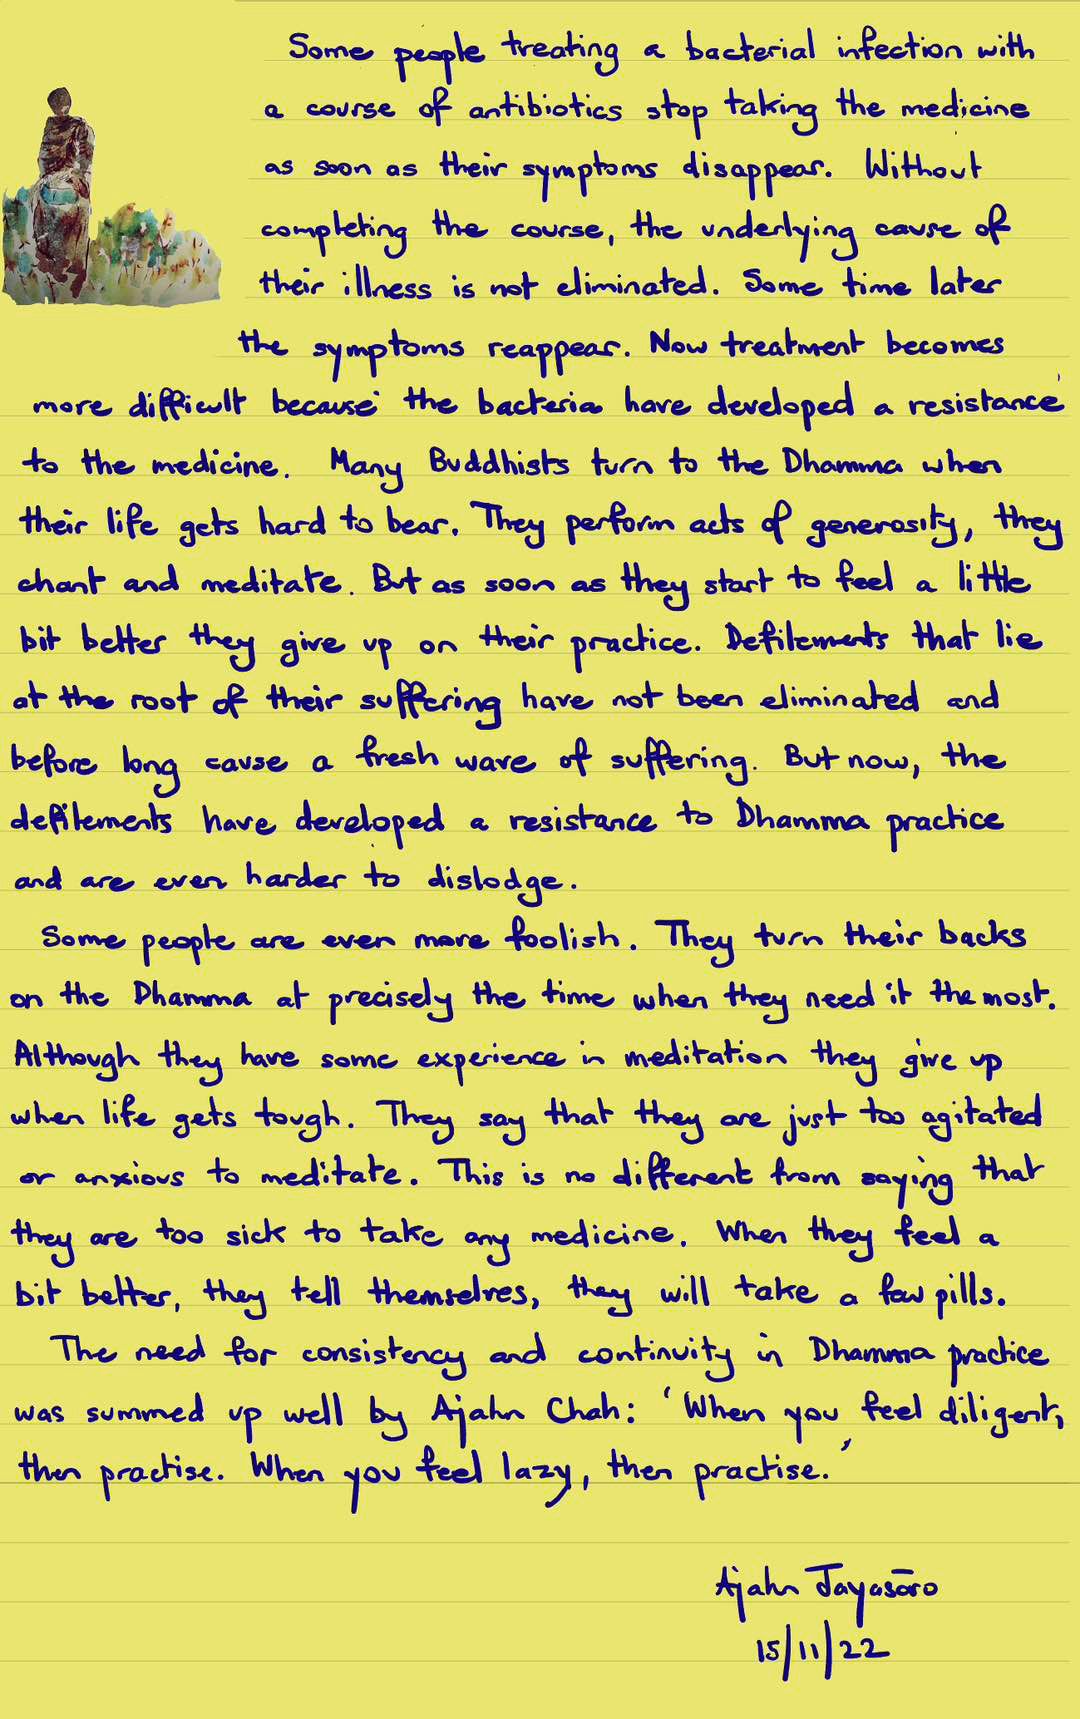 Some people treating a bacterial infection with
a course of antibiotics stop taking the medicine
as soon as their symptoms disappear. Without
completing the course, the underlying cause of
their illness is not eliminated. Some time later
the symptoms reappear. Now treatment becomes
more difficult because the bacteria have developed a resistance
to the medicine. Many Buddhists turn to the Dhamma when
their life gets hard to bear. They perform acts of generosity, they
chant and meditate. But as soon as they start to feel a little
bit better they give up on their practice. Defilements that lie
at the root of their suffering have not been eliminated and
before long cause a fresh wave of suffering. But now, the
defilements have developed a resistance to Dhamma practice
and are even harder to dislodge.
Some people are even more foolish. They turn their backs
on the Dhamma at precisely the time when they need it the most.
Although they have some experience in meditation they give up
when life gets tough. They say that they are just too agitated
or anxious to meditate. This is no different from saying that
they are too sick to take any medicine. When they feel a
bit better, they tell themselves, they will take a few pills.
The need for consistency and continuity in Dhamma practice
was summed up well by Ajahn Chah: 'When you feel diligent,
then practise. When you feel lazy, then practise.'
Ajahn Jayasāro
15/11/22